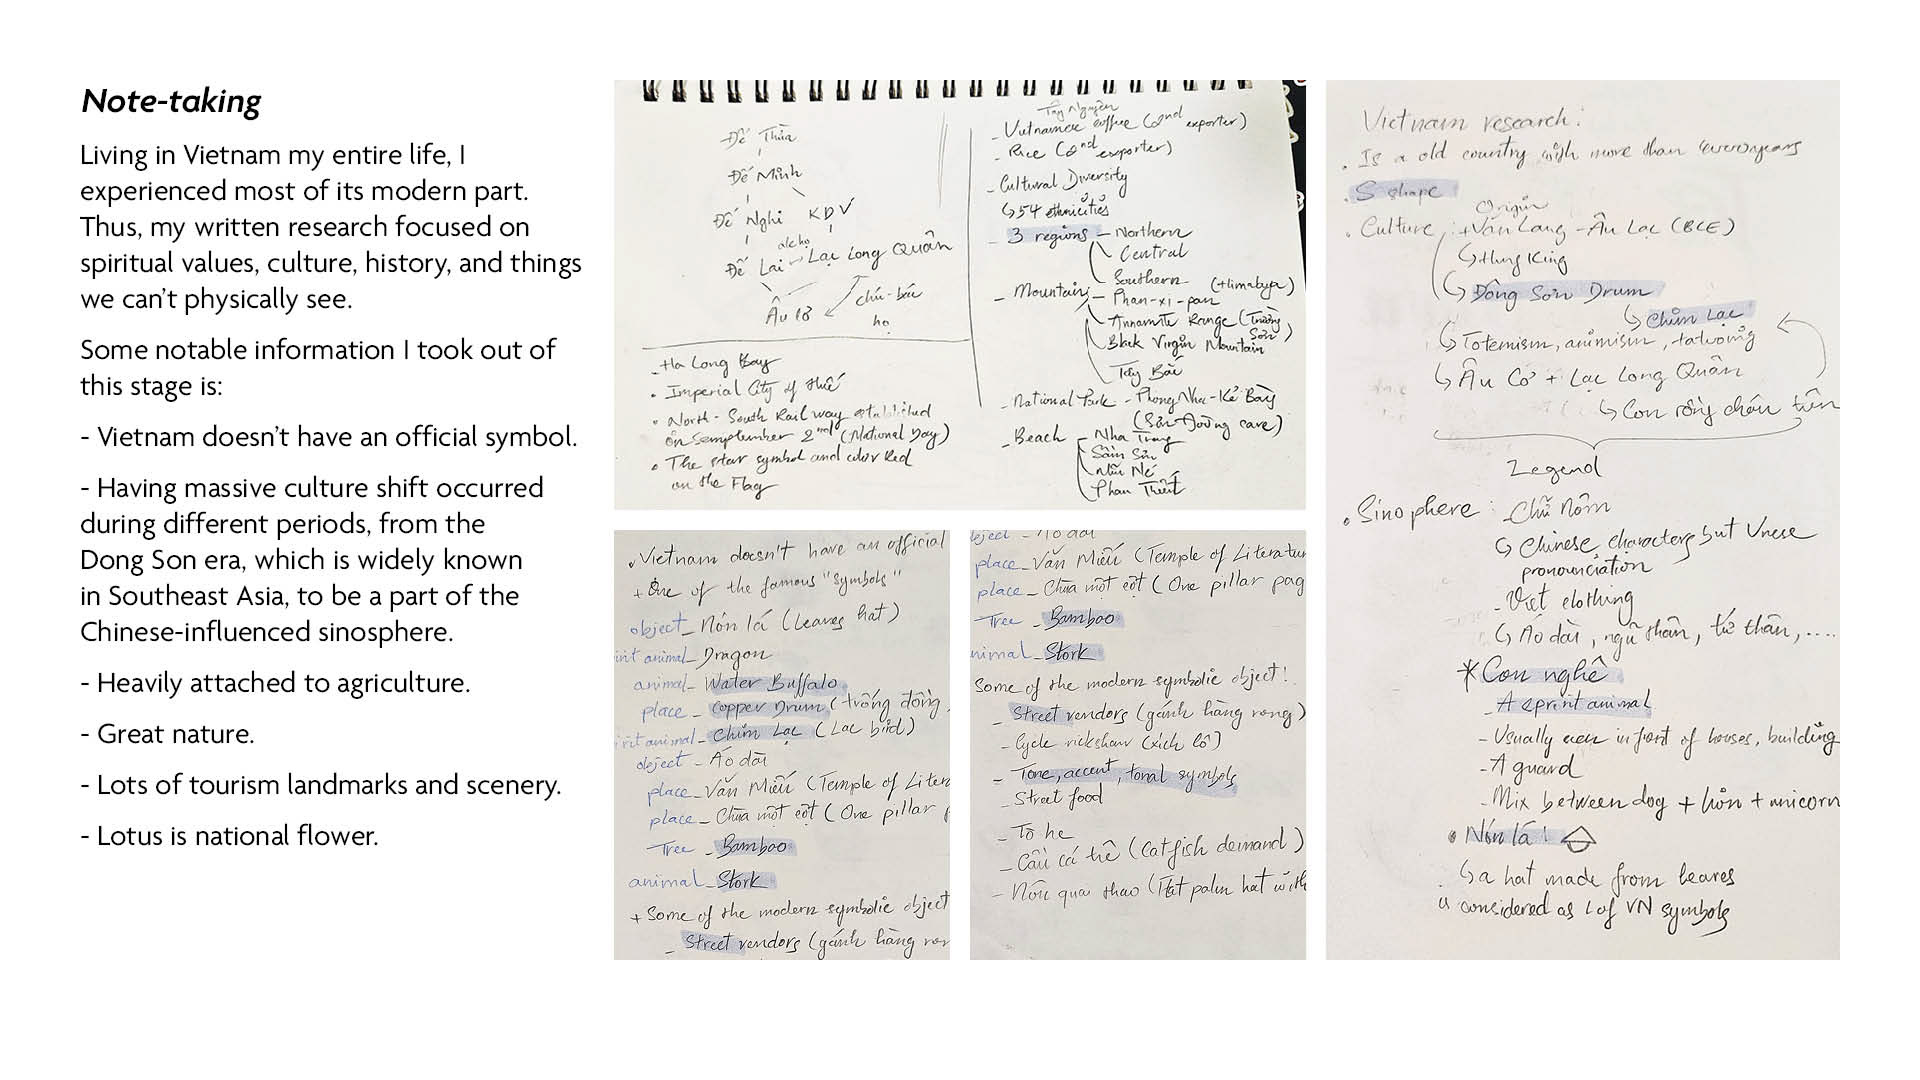 Note-taking
Living in Vietnam my entire life, I
experienced most of its modern part.
Thus, my written research focused on
spiritual values, culture, history, and things
we can’t physically see.
Some notable information I took out of
this stage is:
- Vietnam doesn’t have an official symbol.
- Having massive culture shift occurred
during different periods, from the
Dong Son era, which is widely known
in Southeast Asia, to be a part of the
Chinese-influenced sinosphere.
- Heavily attached to agriculture.
- Great nature.
- Lots of tourism landmarks and scenery.
- Lotus is national flower.
Đế Thừa
Đế Minh
Đế Nghi KDV
Đế Lai Lạc Long Quân
Âu Cơ
họ
- Ha Long Bay
• Imperial City of Huế
• North - South Railway established
on Semptumber 2nd (National Day)
• The star symbol and color Red
on the Flag
Tây Nguyên
- Vietnamese coffee (2nd exporter)
- Rice (2nd exporter)
- Cultural Diversity
54 ethnicities
- 3 regions - Northern
Central
Southern
- Mountain - Phan-xi-pan
Annamite Range (Trường Sơn)
Black Virgin Mountain
Tây Bắc
- National Park - Phong Nha - Kẻ Bàng
(Sơn Đoòng cave)
- Beach - Nha Trang
Sầm Sơn
Mũi Né
Phan Thiết
• Vietnam doesn't have an official
+ One of the famous "symbols"
object - Nón lá (leaves hat)
animal - Dragon
animal - Water Buffalo
place - Copper Drum (trống đồng
animal - Chim Lạc (Lac bird)
object - Áo dài
place - Văn Miếu (Temple of Litera
place - Chùa một cột (One pillar
Tree - Bamboo
animal - Stork
+ Some of the modern symbolic object
- Street vendors (gánh hàng
object - Áo dài
place - Văn Miếu (Temple of Literatur
place - Chùa một cột (One pillar pag
Tree - Bamboo
animal - Stork
Some of the modern symbolic object!
- Street vendors (gánh hàng rong)
- Cycle rickshaw (xích lô)
- Tone, accent, tonal symbols
- Street food
- Tò he
- Câu cá trê (Catfish demand)
- Nón quai thao (Flat palm hat with
Vietnam research:
• Is a old country with more than years
• S shape
Origin
• Culture: + Văn Lang - Âu Lạc (BCE)
Hung King
Đông Sơn Drum
Chim Lạc
Totemism, animism, tatooing
Âu Cơ + Lạc Long Quân
Con rồng cháu tiên
Legend
• Sinophere: - Chữ Nôm
Chinese characters but Vnese
pronounciation
- Việt clothing
Áo dài, ngũ thân, tứ thân, ....
* Con nghê
- A spirit animal
- Usually seen in front of houses, building
- A guard
- Mix between dog + lion + unicorn
• Nón lá!
a hat made from leaves
considered as 1 of VN symbols